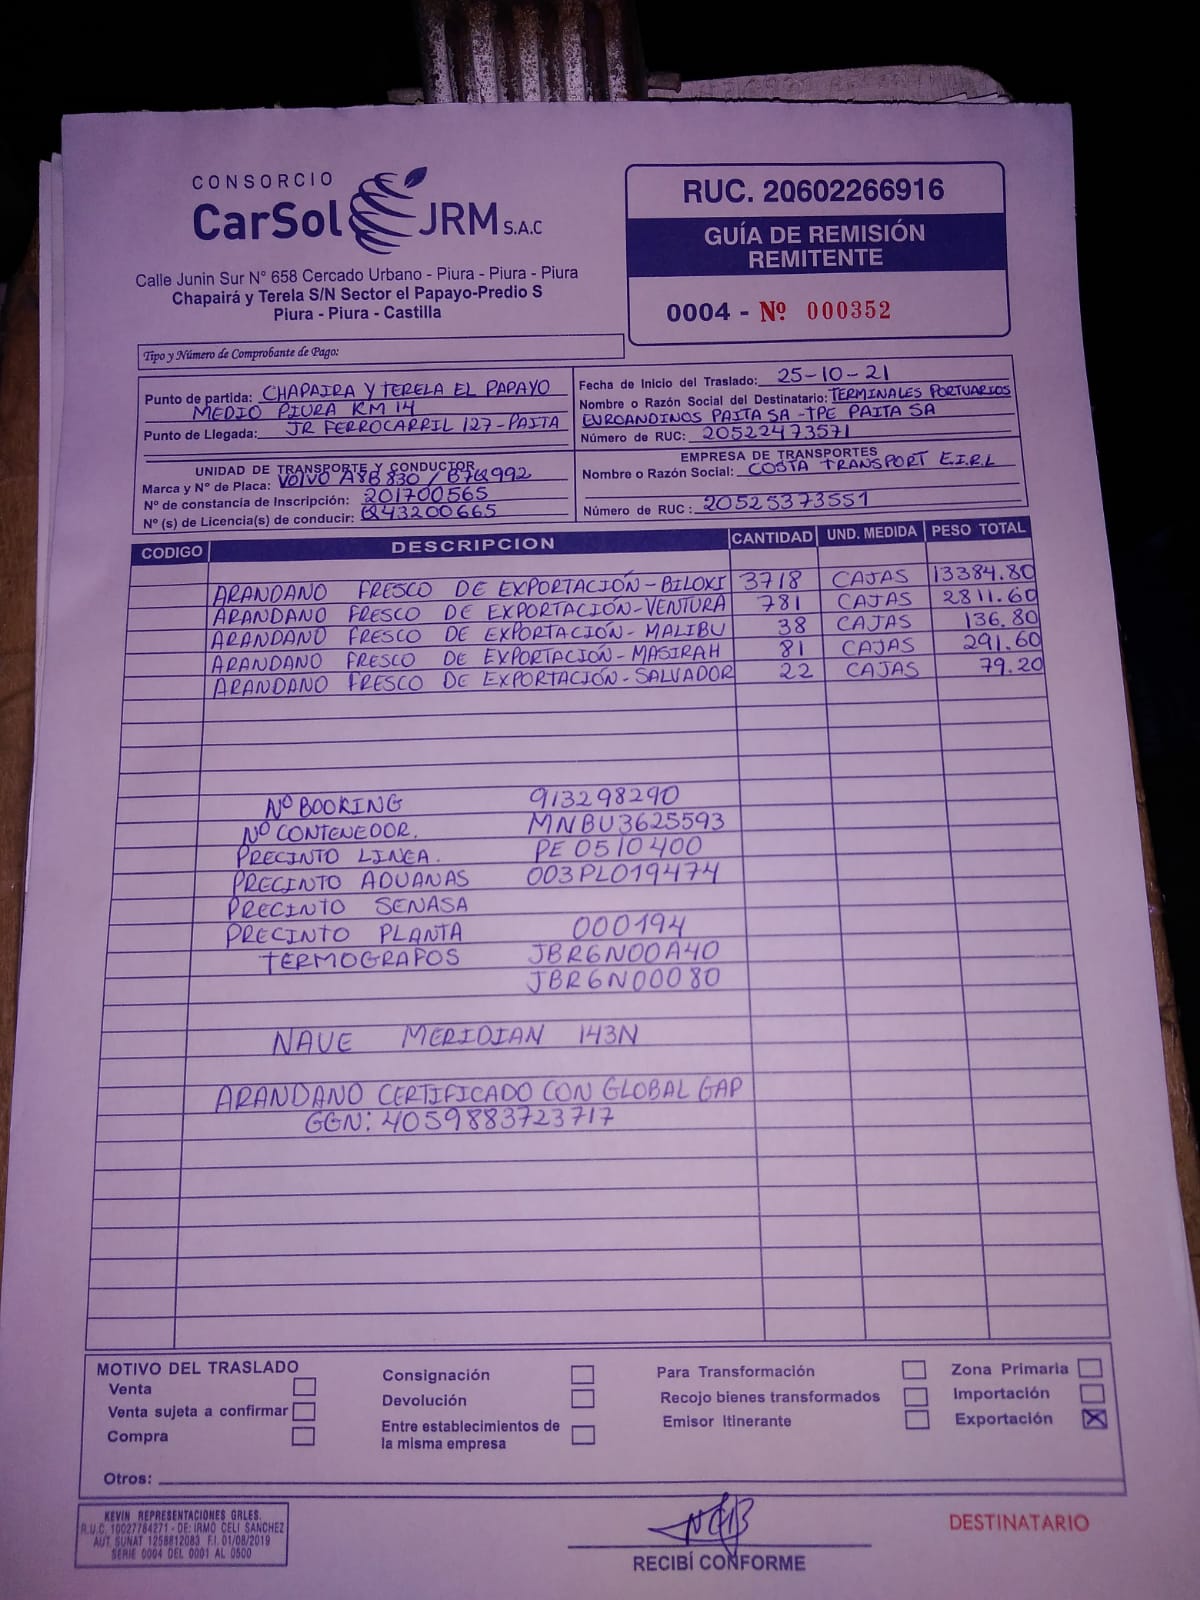 CONSORCIO
CarSol JRM S.A.C
Calle Junin Sur N° 658 Cercado Urbano - Piura - Piura - Piura
Chapairá y Terela S/N Sector el Papayo-Predio S
Piura - Piura - Castilla
RUC. 20602266916
GUÍA DE REMISIÓN
REMITENTE
0004 - Nº 000352
Tipo y Número de Comprobante de Pago:
Punto de partida: CHAPAIRA Y TERELA EL PAPAYO
MEDIO PIURA KM 14
Punto de Llegada: JR FERROCARRIL 127-PAITA
Fecha de Inicio del Traslado: 25-10-21
Nombre o Razón Social del Destinatario: TERMINALES PORTUARIOS
EUROANDINOS PAITA SA -TPE PAITA SA
Número de RUC: 20522473571
UNIDAD DE TRANSPORTE Y CONDUCTOR
Marca y Nº de Placa: VOLVO A8B830 / B7Q992
Nº de constancia de Inscripción: 201700565
Nº (s) de Licencia(s) de conducir: Q43200665
EMPRESA DE TRANSPORTES
Nombre o Razón Social: COSTA TRANSPORT E.I.R.L
Número de RUC : 20525373551
CODIGO DESCRIPCION CANTIDAD UND. MEDIDA PESO TOTAL
ARANDANO FRESCO DE EXPORTACIÓN-BILOXI 3718 CAJAS 13384.80
ARANDANO FRESCO DE EXPORTACIÓN-VENTURA 781 CAJAS 2811.60
ARANDANO FRESCO DE EXPORTACIÓN- MALIBU 38 CAJAS 136.80
ARANDANO FRESCO DE EXPORTACIÓN-MASIRAH 81 CAJAS 291.60
ARANDANO FRESCO DE EXPORTACIÓN-SALVADOR 22 CAJAS 79.20
Nº BOOKING 913298290
Nº CONTENEDOR. MNBU3625593
PRECINTO LINEA. PE 0510400
PRECINTO ADUANAS 003PL019474
PRECINTO SENASA
PRECINTO PLANTA 000194
TERMOGRAFOS JBR6N00A40
JBR6N00080
NAVE MERIDIAN 143N
ARANDANO CERTIFICADO CON GLOBAL GAP
GGN: 4059883723717
MOTIVO DEL TRASLADO
Venta
Venta sujeta a confirmar
Compra
Consignación
Devolución
Entre establecimientos de
la misma empresa
Para Transformación
Recojo bienes transformados
Emisor Itinerante
Zona Primaria
Importación
Exportación
Otros:
KEVIN REPRESENTACIONES GRLES.
R.U.C. 10027784271 - DE: IRMO CELI SANCHEZ
AUT. SUNAT 1258812083 F.I. 01/08/2019
SERIE 0004 DEL 0001 AL 0500
RECIBÍ CONFORME
DESTINATARIO